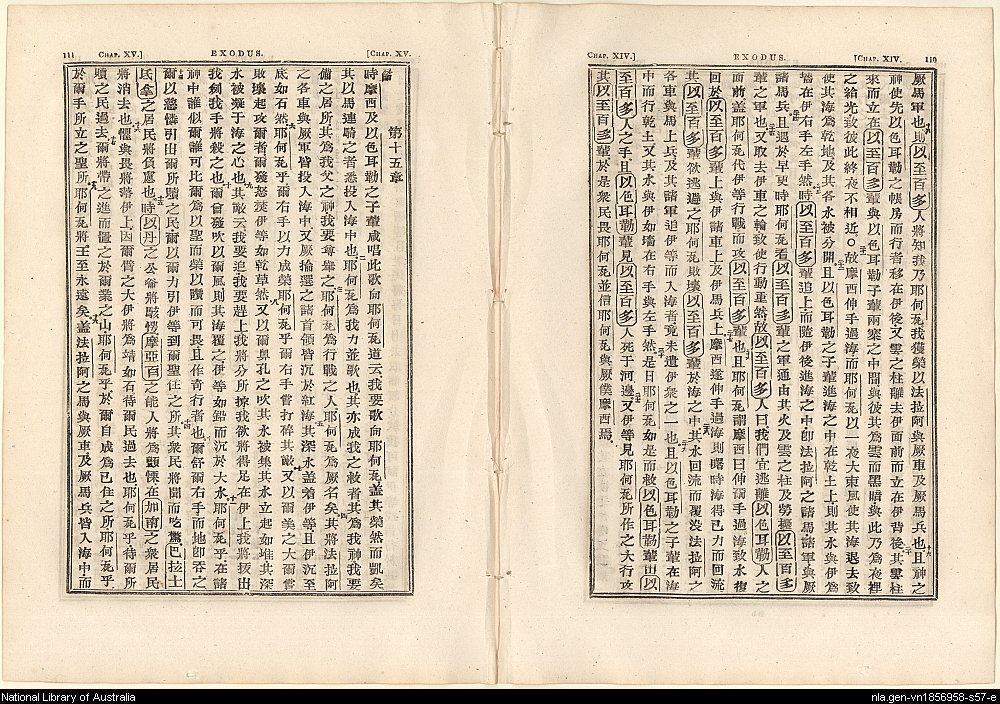 CHAP. XIV.] EXODUS. [CHAP. XIV. 110
厥馬軍也則以至百多人將知我乃耶何瓦我獲榮以法拉阿與厥車及厥馬兵也且神之
神使先以色耳勒之帳房而行者移在伊後又雲之柱離去伊面前而立在伊背後其雲柱
來而立在以至百多輩與以色耳勒子輩兩寨之中間與彼其為雲而黑暗與此乃為夜裡
之給光致彼此終夜不相近○故摩西伸手過海而耶何瓦以一夜大東風使其海退去致
使其海為乾地及其各水被分開且以色耳勒之子輩進海之中在乾土上則其水與伊為
墻在伊右手左手然時以至百多輩追上而隨伊後進海之中卽法拉阿之諸馬諸軍與厥
諸馬兵且遇於早更時耶何瓦看以至百多輩之軍通由其火及雲之柱及勞擾以至百多
輩之軍也又取去伊車之輪致使行動重然故以至百多人曰我們宜逃離以色耳勒人之
面前蓋耶何瓦代伊等行戰而攻以至百多輩也且耶何瓦謂摩西曰伸爾手過海致水復
回於以至百多輩上與伊諸車上及伊馬兵上摩西遂伸手過海則曙時海得已力而回流
其以至百多輩欲逃過之耶何瓦敗壞以至百多輩於海之中其水回流而覆沒法拉阿之
各車與馬上兵及其諸軍追伊等而入海者竟未遺伊衆之一也且以色耳勒之子輩在海
中而行乾土又其水與伊如墻在右手與左手然是日耶何瓦如是而救以色耳勒輩出以
至百多人之手且以色耳勒輩見以至百多人死于河邊又伊等見耶何瓦所作之大行攻
其以至百多輩於是衆民畏耶何瓦並信耶何瓦與厥僕摩西焉
111 CHAP. XV.] EXODUS. [CHAP. XV.
第十五章
時摩西及以色耳勒之子輩咸唱此歌向耶何瓦道云我要歌向耶何瓦蓋其榮然而凱矣
其以馬連騎之者悉投入海中也耶何瓦為我力並歌也其亦成我之救者其為我神我要
備之居所其為我父之神我要尊舉之耶何瓦為行戰之人耶何瓦為厥名矣其將法拉阿
之各車與厥軍皆投入海中又厥掄選之諸首領皆沉於紅海其深水蓋着伊等且伊沉至
底如石然耶何瓦乎爾右手以力成榮耶何瓦乎爾右手嘗打碎其敵又以爾美之大爾嘗
敗壞起攻爾者爾發怒燒伊等如乾草然又以爾鼻孔之吹其水被集其水立起如堆其深
水被凝于海之心也其敵云我要追我要趕上我將分所掠我欲將得足在伊上我將拔出
我劍我手將殺之也爾曾發吹以爾風則其海覆之伊等如鉛而沉於大水耶何瓦乎在諸
神中誰似爾誰可比爾為以聖而榮以讚而可畏且作奇行者也爾舒爾右手而地卽吞之
爾以慈憐引出爾所贖之民爾以爾力引伊等到爾聖住之所其衆民將聞而吃驚巴拉士
民拿之居民將負慮也時以丹之公侯將駭愕摩亞百之能人將為顫慄在加南之衆居民
將消去也懼與畏將落伊上因爾臂之大伊將為靖如石待爾民過去也耶何瓦乎待爾所
贖之民過去爾將帶之進而置之於爾業之山耶何瓦乎於爾自成為已住之所耶何瓦乎
於爾手所立之聖所耶何瓦將王至永遠矣蓋法拉阿之馬與厥車及厥馬兵皆入海中而
National Library of Australia
nla.gen-vn1856958-s57-e